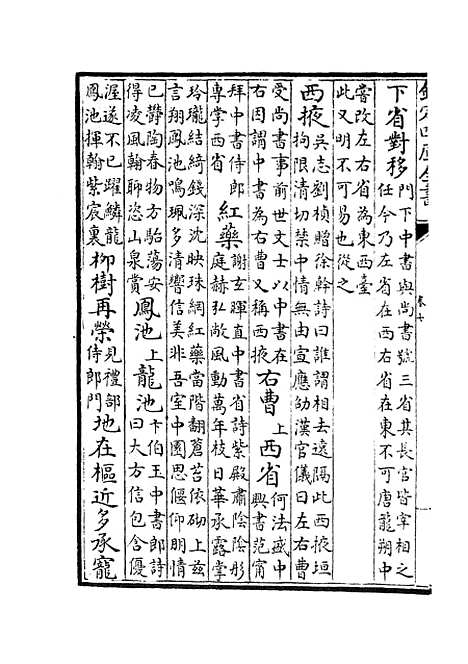 下省對移
門下中書與尚書號三省其長官皆宰相之
任今乃左省在西右省在東不可唐龍朔中
嘗改左右省為東西臺
此又明不可易也從之
西掖
吳志劉楨贈徐幹詩曰誰謂相去遠隔此西掖垣
拘限清切禁中情無由宣應劭漢官儀曰左右曹
受尚書事前世文士以中書在
右因謂中書為右曹又稱西掖
右曹
上
西省
何法盛中
興書范甯
拜中書侍郎
專掌西省
紅藥
謝玄暉直中書省詩紫殿肅陰陰彤
庭赫弘敞風動萬年枝日華承露掌
玲瓏結綺錢深沈映珠網紅藥當階翻蒼苔依砌上兹
言翔鳳池鳴珮多清響信美非吾室中園思偃仰朋情
已鬱陶春物方駘蕩安
得凌風翰聊恣山泉賞
鳳池
上
龍池
卞伯玉中書郎詩
曰大方信包含優
渥遂不已躍鱗龍
鳳池揮翰紫宸裏
柳樹再榮
見禮部
侍郎門
地在樞近多承寵